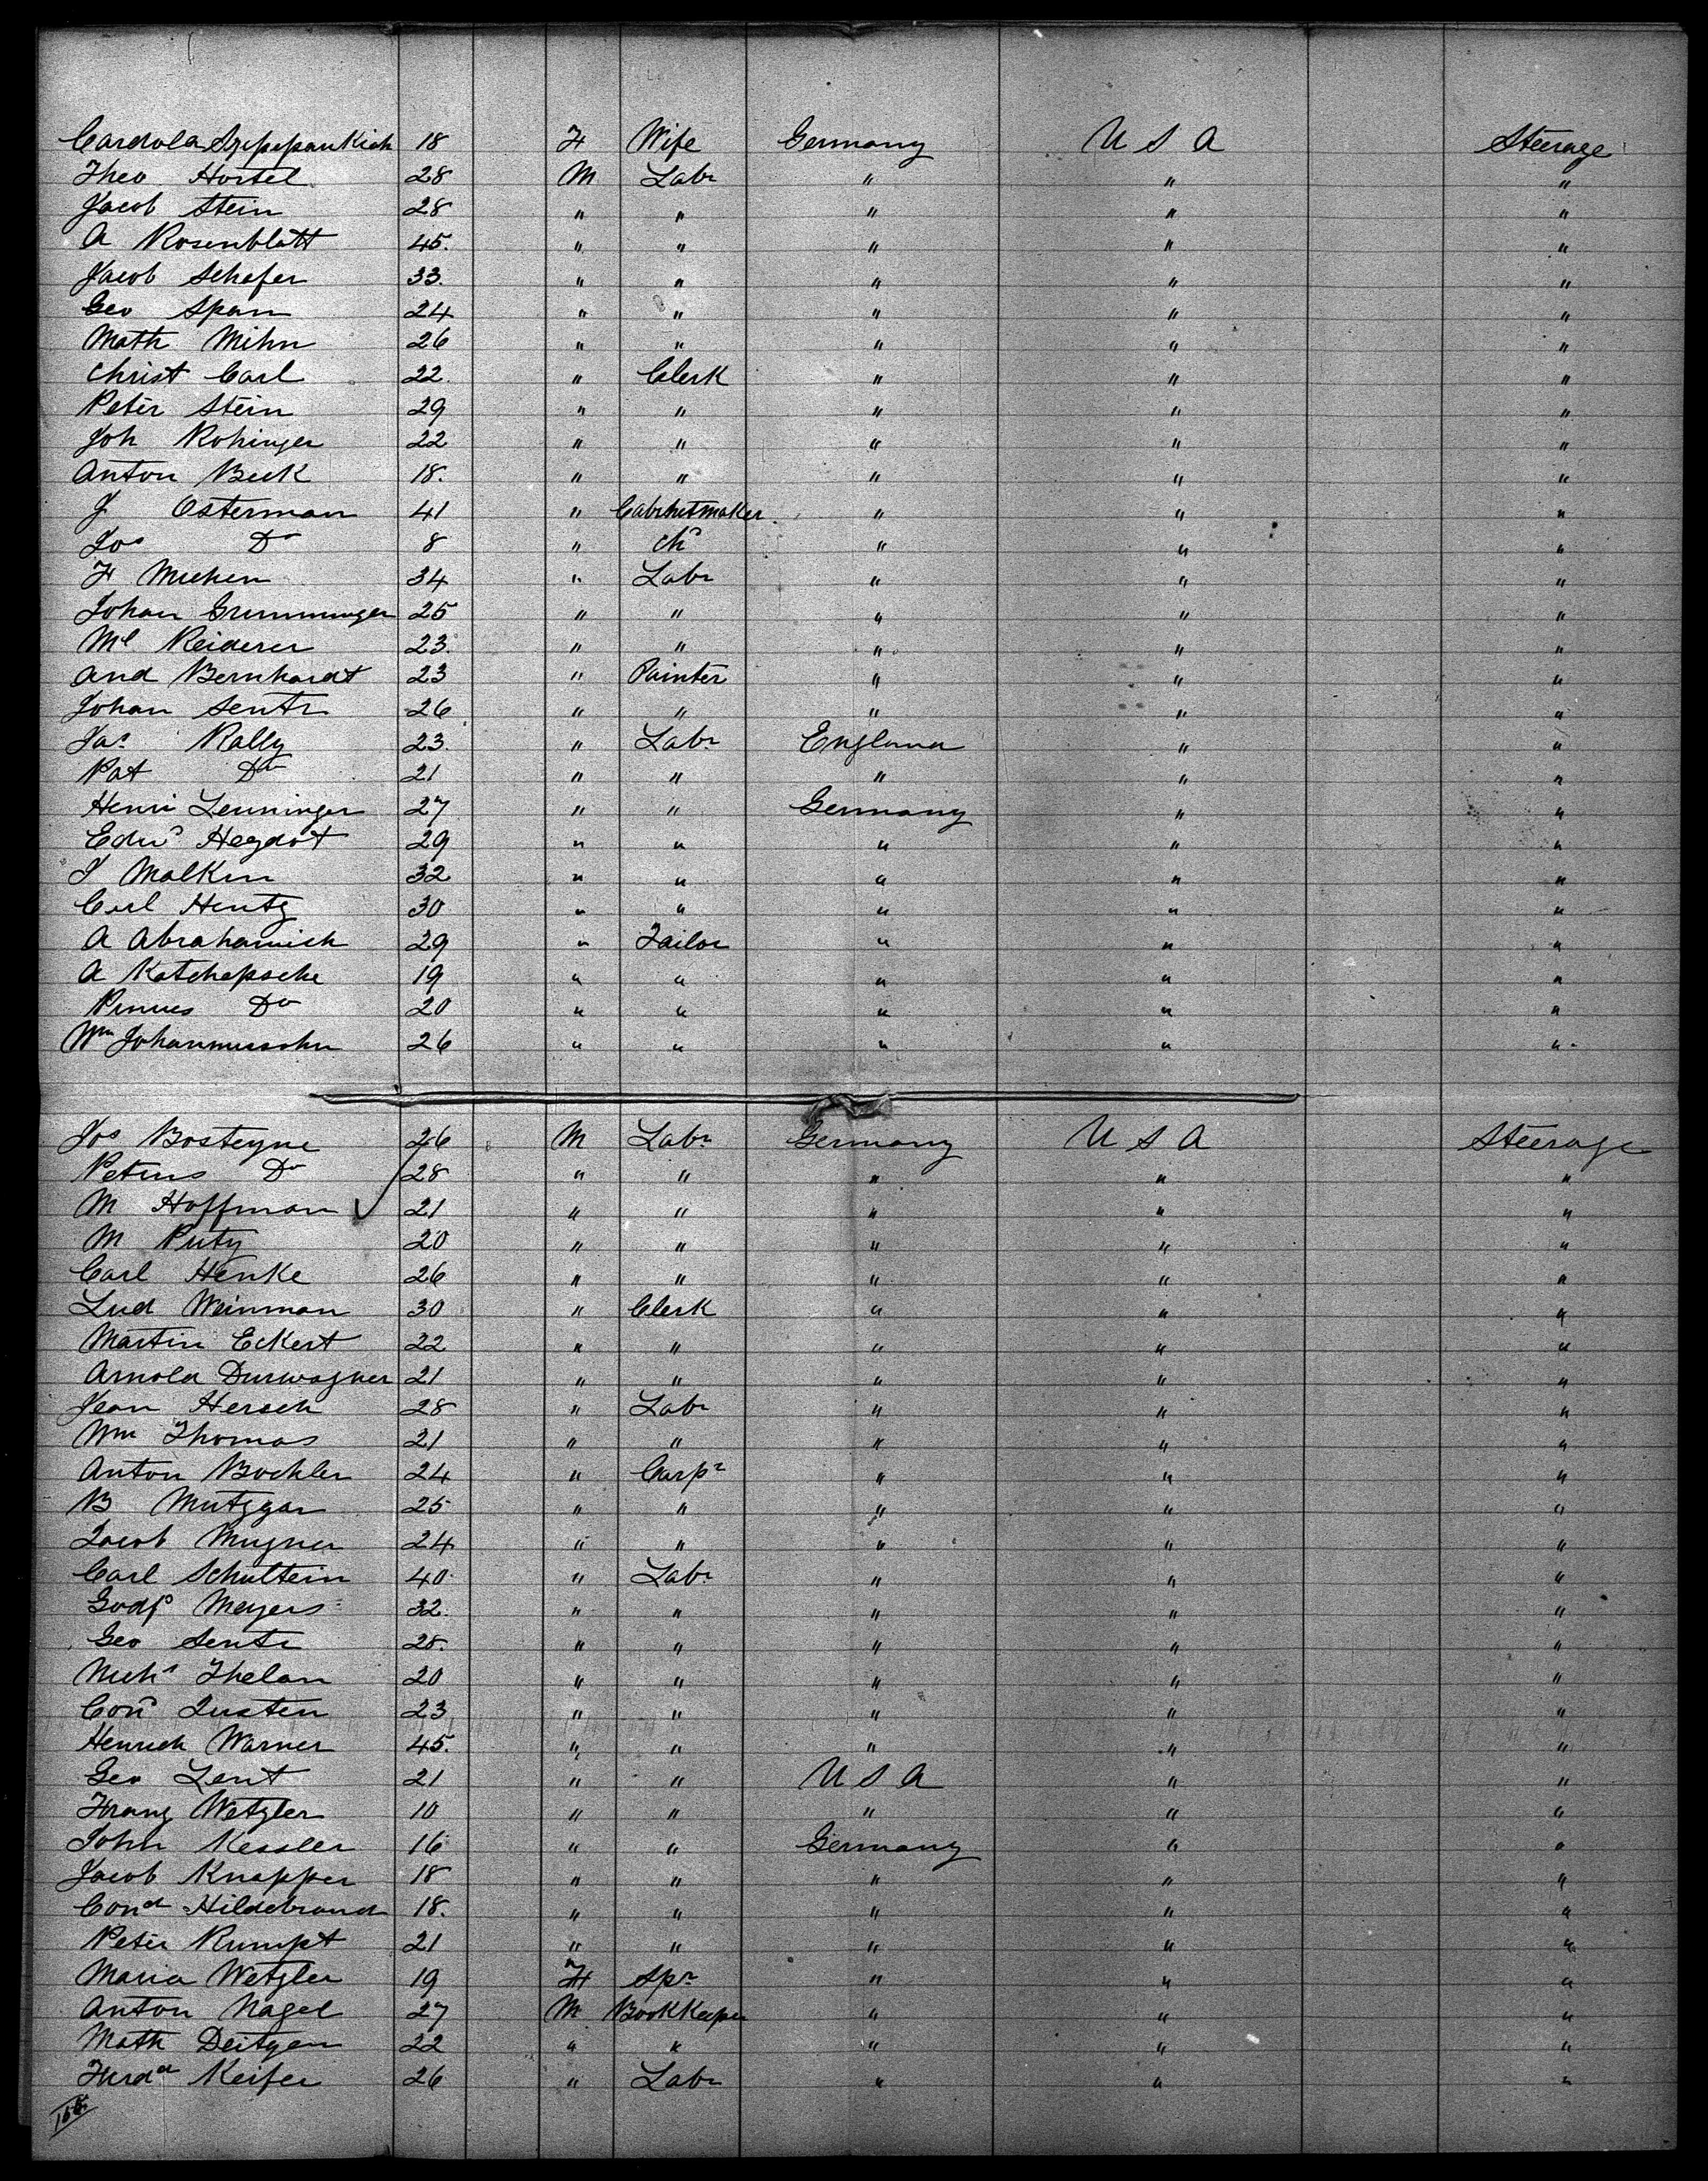 Cardola Szpepankich 18 F Wife Germany U S A Steerage
Theo Hortel 28 M Labr " " "
Jacob Stein 28 " " " " "
A Rosenblatt 45. " " " " "
Jacob Schafer 33. " " " " "
Geo Span 24 " " " " "
Math Mihn 26 " " " " "
Christ Carl 22. " Clerk " " "
Peter Stein 29 " " " " "
Joh Rohinger 22 " " " " "
Anton Beck 18. " " " " "
J Osterman 41 " Cabinetmaker " " "
Jos Do 8 " chd " " "
F Meehen 34 " Labr " " "
Johan Gremminger 25 " " " " "
Ml Reiderer 23. " " " " "
And Bernhardt 23 " Painter " " "
Johan Sentr 26 " " " " "
Jas Rally 23. " Labr England " "
Pat Do 21 " " " " "
Henri Lenninger 27 " " Germany " "
Edwd Hegdot 29 " " " " "
J Malkin 32 " " " " "
Carl Hentz 30 " " " " "
A Abrahamich 29 " Tailor " " "
A Katchepsche 19 " " " " "
Pinus Do 20 " " " " "
Wm Johannessohn 26 " " " " "
Jos Bosteyne 26 M Labr Germany U S A Steerage
Petrus Do 28 " " " " "
M Hoffman 21 " " " " "
M Puty 20 " " " " "
Carl Henke 26 " " " " "
Lud Weinman 30 " Clerk " " "
Martin Eckert 22 " " " " "
Arnold Durwagner 21 " " " " "
Jean Hersch 28 " Labr " " "
Wm Thomas 21 " " " " "
Anton Bochler 24 " Carpr " " "
B Mutzgar 25 " " " " "
Jacob Mugner 24 " " " " "
Carl Schultein 40 " Labr " " "
Godfd Meyers 32. " " " " "
Geo Sentr 28. " " " " "
Nichs Thelan 20 " " " " "
Cond Justen 23 " " " " "
Henrich Warner 45. " " " " "
Geo Lent 21 " " U S A " "
Franz Wetzler 10 " " " " "
John Kessler 16 " " Germany " "
Jacob Knapper 18 " " " " "
Cond Hildebrand 18. " " " " "
Peter Rumpt 21 " " " " "
Maria Wetzler 19 F Spr " " "
Anton Nagel 27 M Bookkeeper " " "
Math Deitgen 22 " " " " "
Ferdd Keifer 26 " Labr " " "